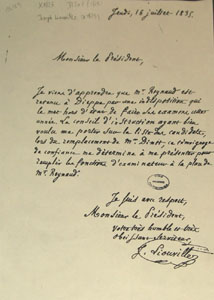 Jeudi, 16 juillet 1835.
Monsieur le Président,
Je viens d'apprendre que Mr. Reynaud est
retenu à Dieppe par une indisposition qui
le met hors d'état de faire son examen cette
année. Le conseil d'instruction ayant bien
voulu me porter sur la liste des candidats,
lors du remplacement de Mr. Dinet, ce témoignage
de confiance me détermine à me présenter pour
remplir les fonctions d'examinateur à la place de
Mr. Reynaud.
Je suis avec respect,
Monsieur le Président,
votre très humble et très
obéissant serviteur
J. Liouville